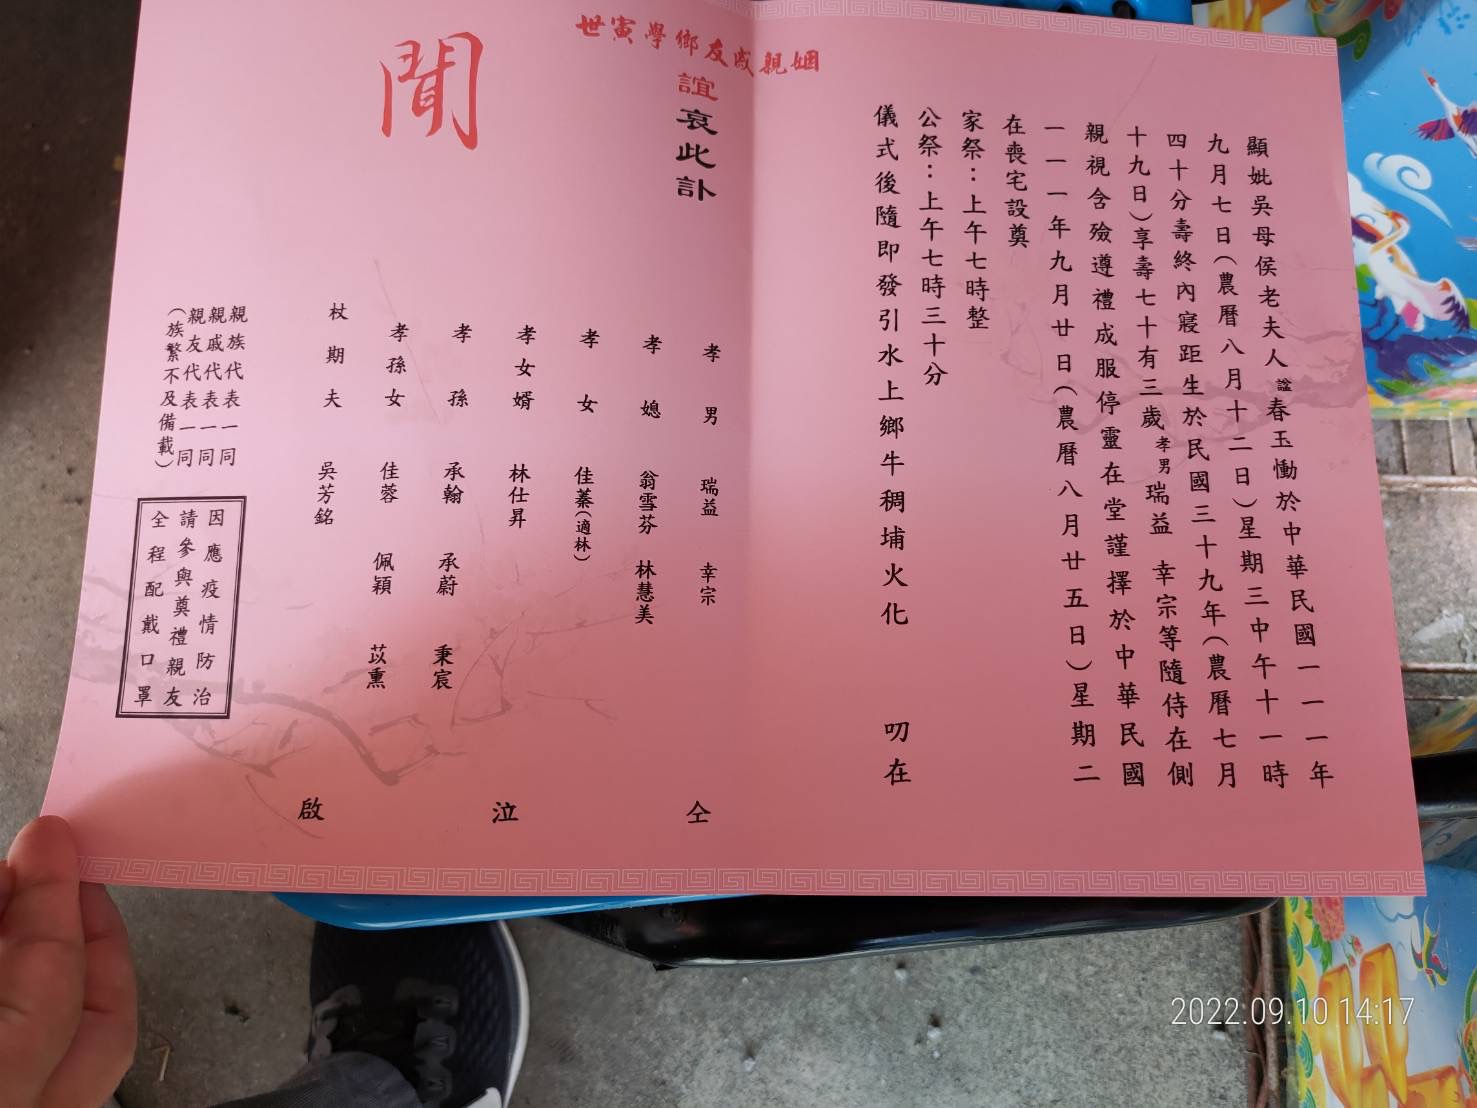 顯妣吳母侯老夫人諡春玉慟於中華民國一一一年
九月七日(農曆八月十二日)星期三中午十一時
四十分壽終內寢距生於民國三十九年(農曆七月
十九日)享壽七十有三歲孝男瑞益 幸宗等隨侍在側
親視含殮遵禮成服停靈在堂謹擇於中華民國
一一一年九月廿日(農曆八月廿五日)星期二
在喪宅設奠
家祭：上午七時整
公祭：上午七時三十分
儀式後隨即發引水上鄉牛稠埔火化 叨在
姻親戚友鄉學寅世
誼哀此訃
聞
孝男 瑞益 幸宗
孝媳 翁雪芬 林慧美
孝女 佳蓁(適林)
孝女婿 林仕昇
孝孫 承翰 承蔚 秉宸
孝孫女 佳蓉 佩穎 苡熏
杖期夫 吳芳銘
仝 泣 啟
親族代表一同
親戚代表一同
親友代表一同
(族繁不及備載)
因應疫情防治
請參與奠禮親友
全程配戴口罩
2022.09.10 14:17